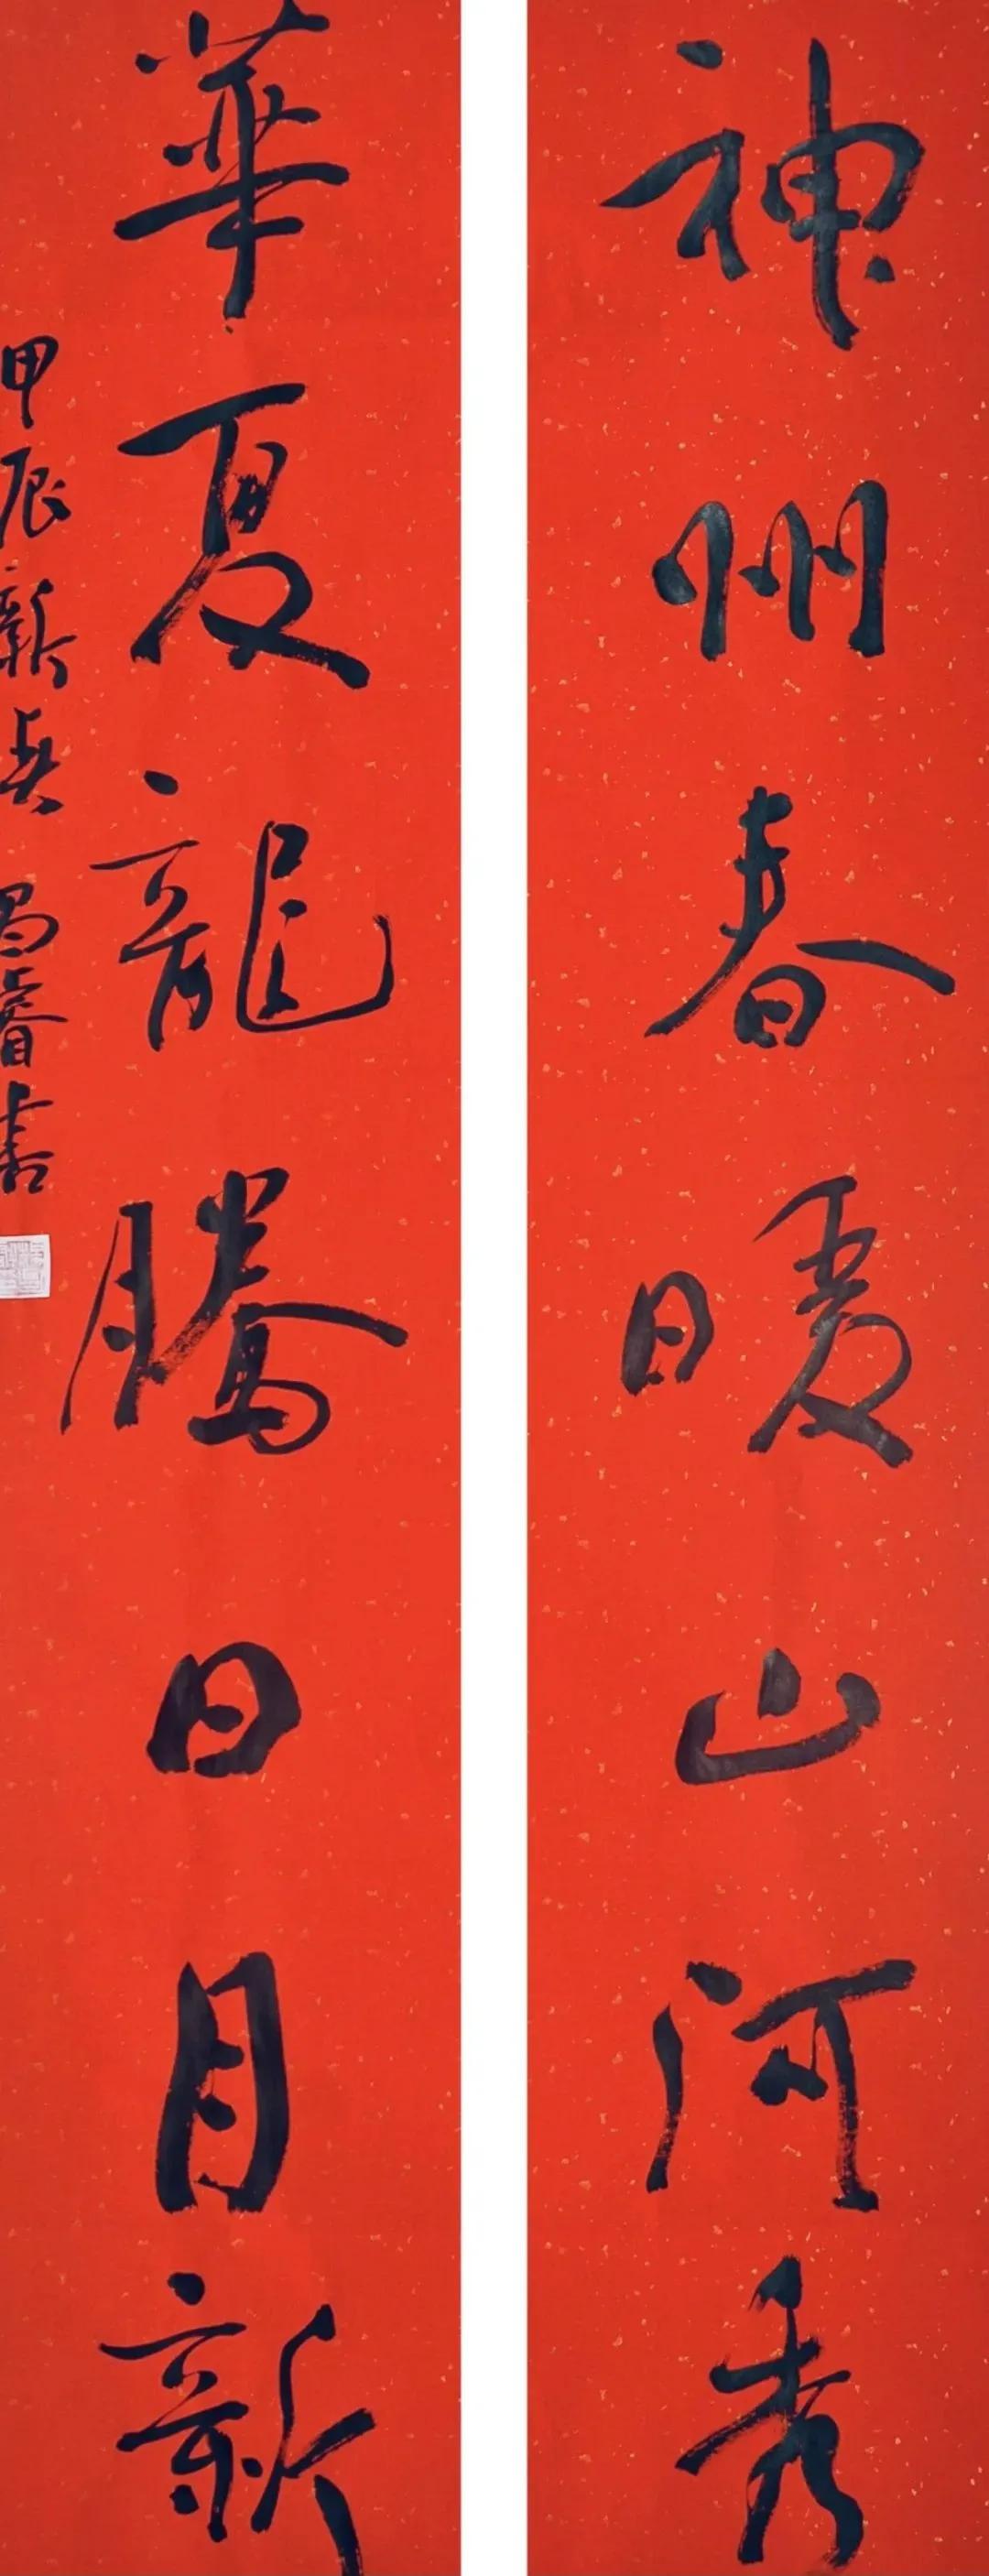 神州春暖山河秀
華夏龍騰日月新
甲辰新春 昌睿書